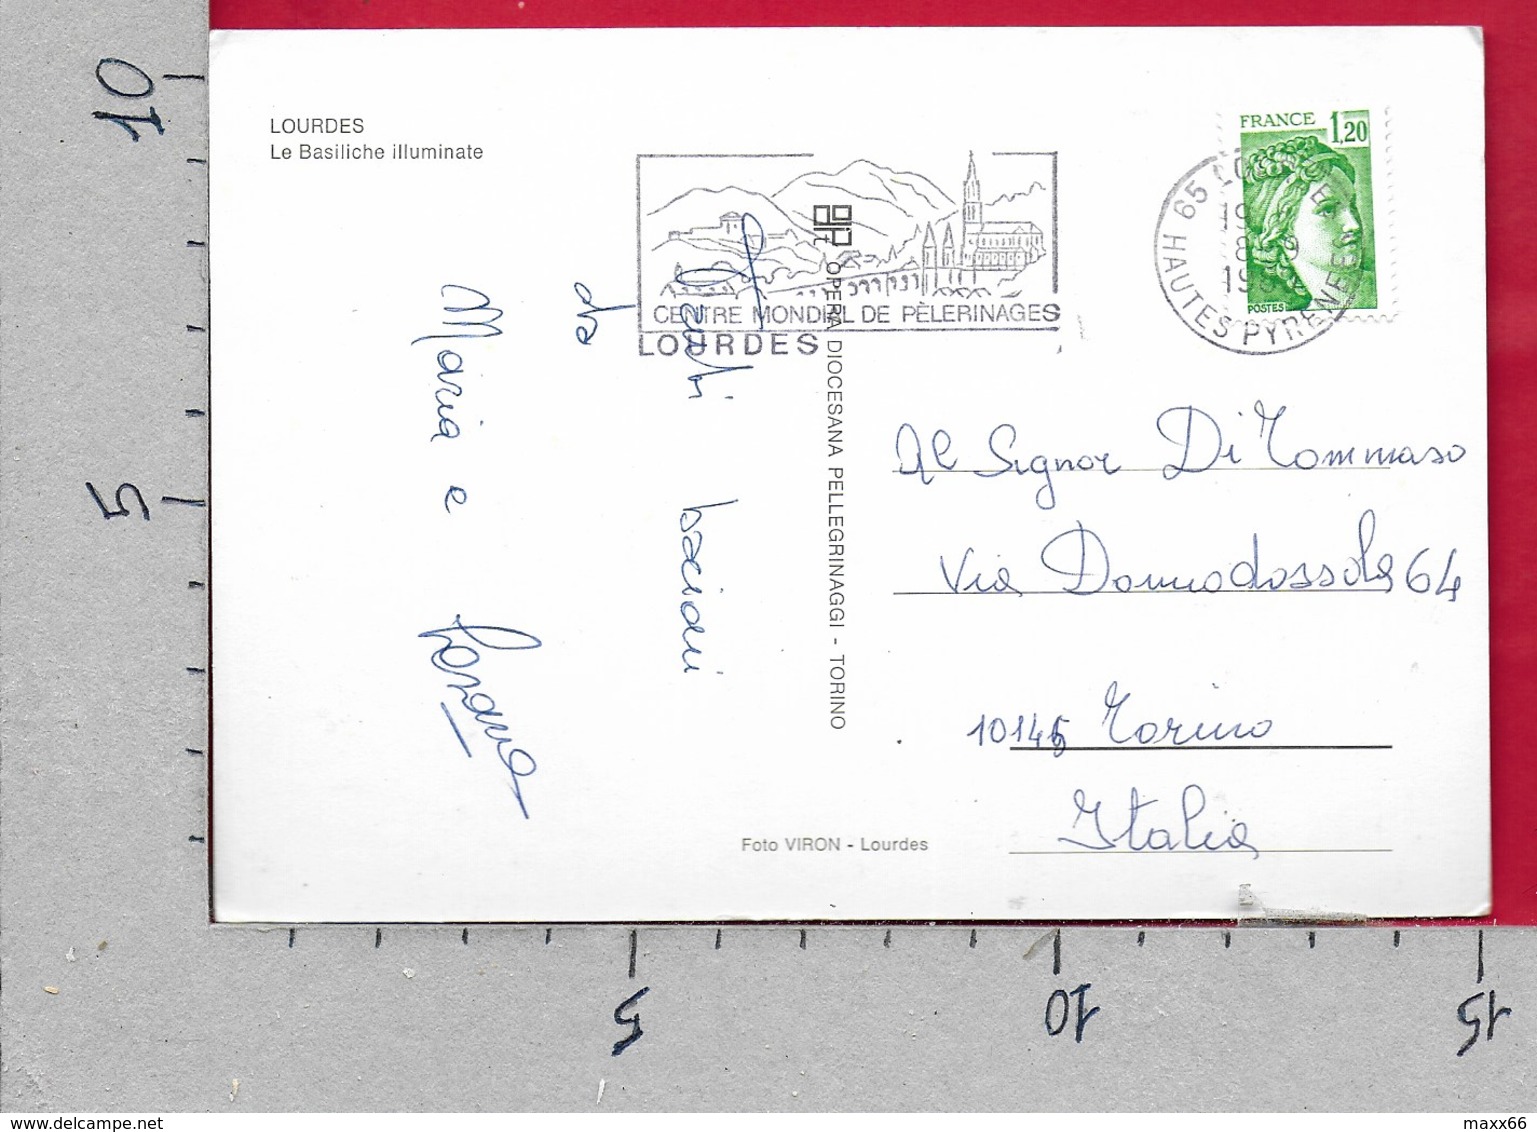 LOURDES
Le Basiliche illuminate
FRANCE 1,20
POSTES
65
HAUTES PYRENEES
CENTRE MONDIAL DE PÈLERINAGES
LOURDES
opt OPERA DIOCESANA PELLEGRINAGGI - TORINO
Tanti bacioni
da
Maria e
Al Signor Di Tommaso
Via Domodossola 64
10145 Torino
Italia
Foto VIRON - Lourdes
10
5
5
10
15
www.delcampe.net
maxx66